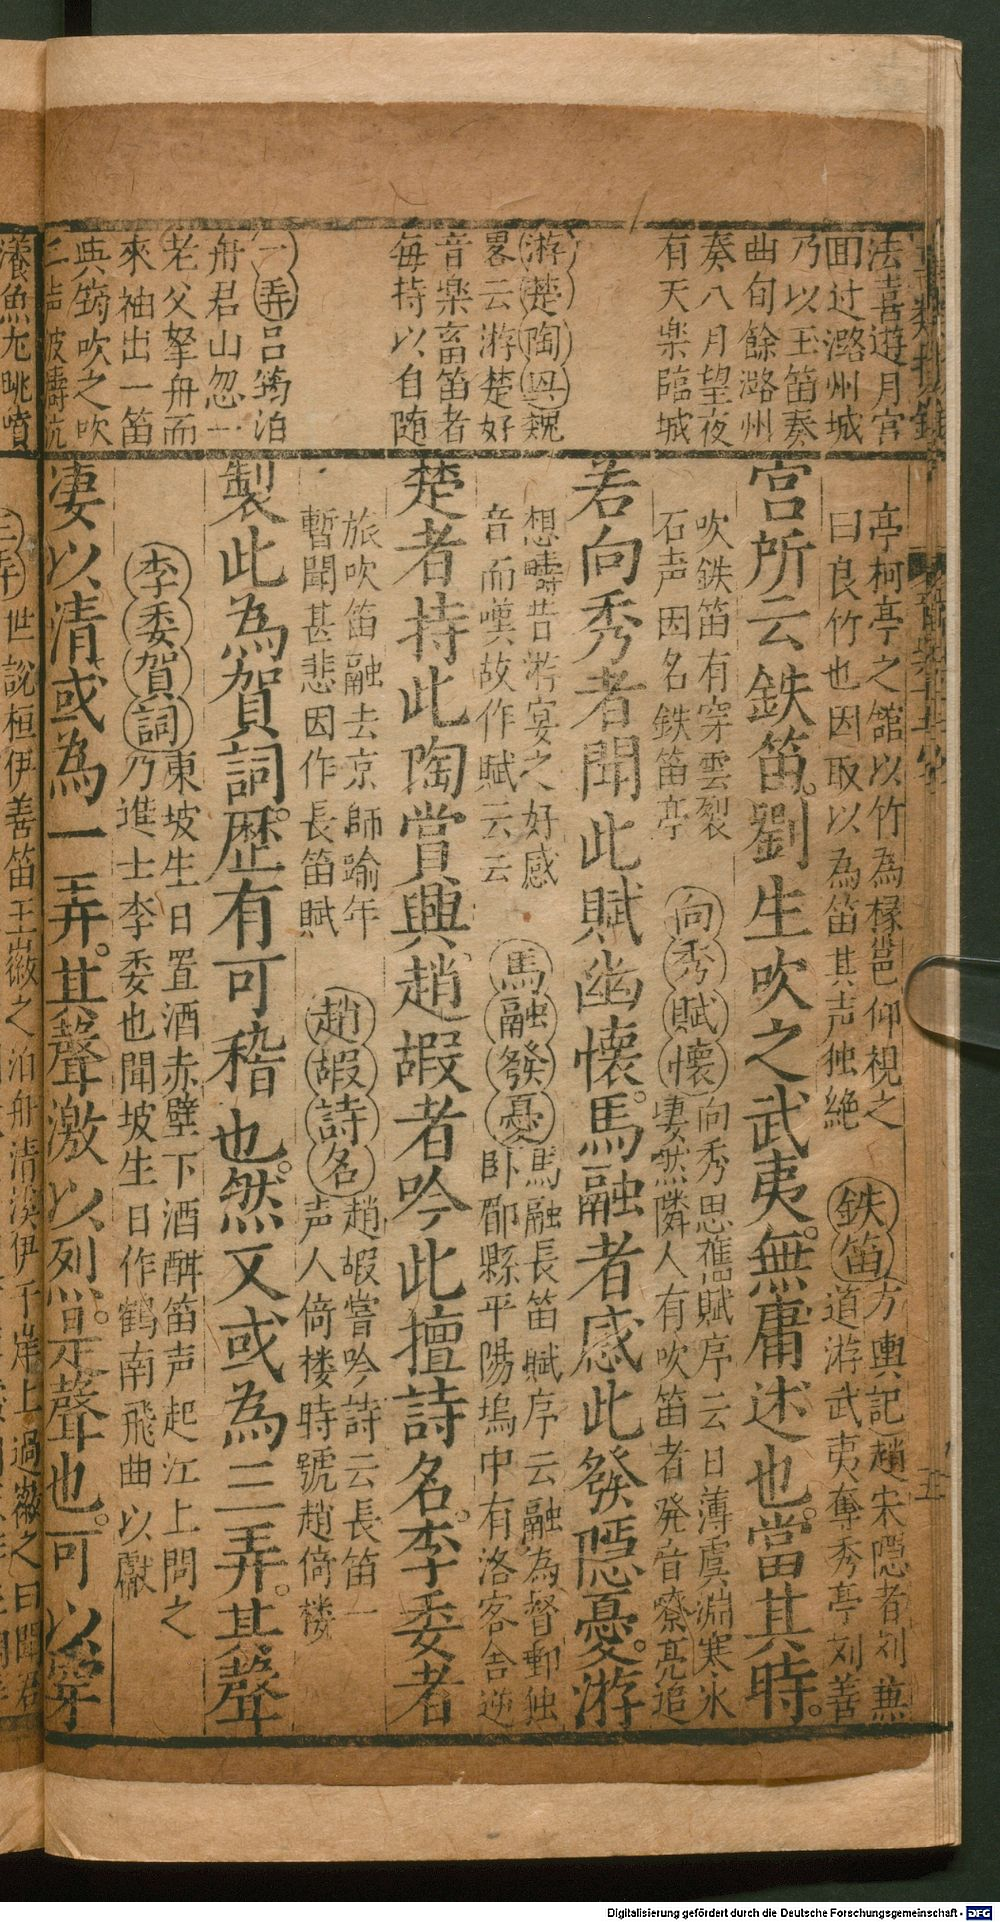 法喜遊月宮
囬过潞州城
乃以玉笛奏
曲旬餘潞州
奏八月望夜
有天楽臨城
游楚陶峴魏
畧云游楚好
音楽畜笛者
每持以自随
一弄吕筠泊
舟君山忽一
老父拏舟而
來袖出一笛
與筠吹之吹
亭柯亭之舘以竹為椽邕仰視之
曰良竹也因取以為笛其声独絶
鉄笛方輿記趙宋隠者刘兼
道游武夷奪秀亭刘善
宮所云鉄笛劉生吹之武夷無庸述也當其時
吹鉄笛有穿雲裂
石声因名鉄笛亭
向秀賦懷向秀思舊賦序云日薄虞淵寒氷
凄然隣人有吹笛者発音嘹亮追
若向秀者聞此賦幽懷馬融者感此發隠憂游
想疇昔游宴之好感
音而嘆故作賦云云
馬融發憂馬融長笛賦序云融為督郵独
卧郿縣平陽塢中有洛客舎逆
楚者持此陶賞興趙嘏者吟此擅詩名李委者
旅吹笛融去京師踰年
暫聞甚悲因作長笛賦
趙嘏詩名趙嘏嘗吟詩云長笛一
声人倚楼時號趙倚楼
製此為賀詞歴有可稽也然又或為三弄其聲
李委賀詞東坡生日置酒赤壁下酒酣笛声起江上問之
乃進士李委也聞坡生日作鶴南飛曲以獻
凄以清或為一弄其聲激以烈是聲也可以穿
瀁魚尢眺噴
三弄世說桓伊善笛王徽之泊舟清溪伊于岸上過徽之曰聞君
Digitalisierung gefördert durch die Deutsche Forschungsgemeinschaft - DFG